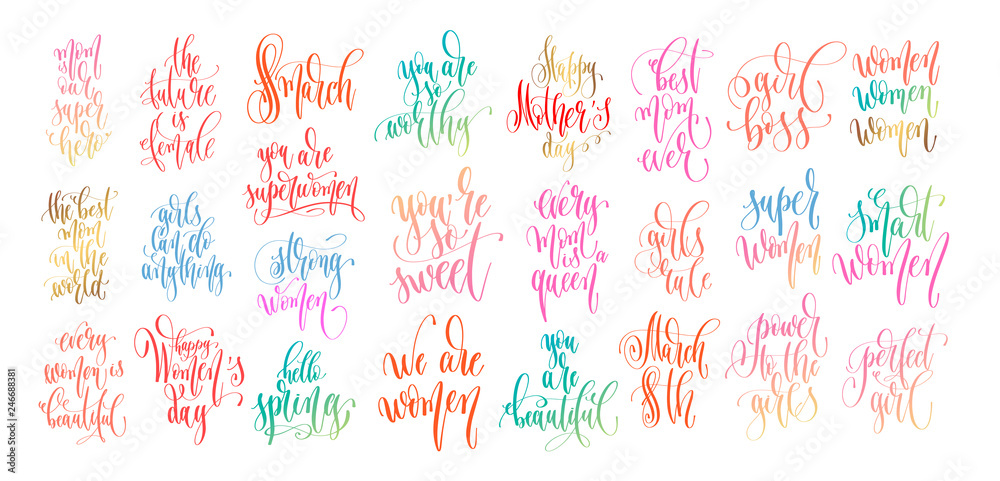 mom
is
our
super
hero
the
future
is
female
8 march
you are
so
worthy
Happy
Mother's
day
best
mom
ever
girl
boss
women
women
women
you are
superwomen
the best
mom
in the
world
girls
can do
anything
strong
women
you're
so
sweet
every
mom
is a
queen
girls
rule
super
women
smart
women
every
women is
beautiful
happy
Women's
day
hello
spring
we are
women
you
are
beautiful
March
8th
power
to the
girls
perfect
girl
Adobe Stock | #246688381
Adobe Stock